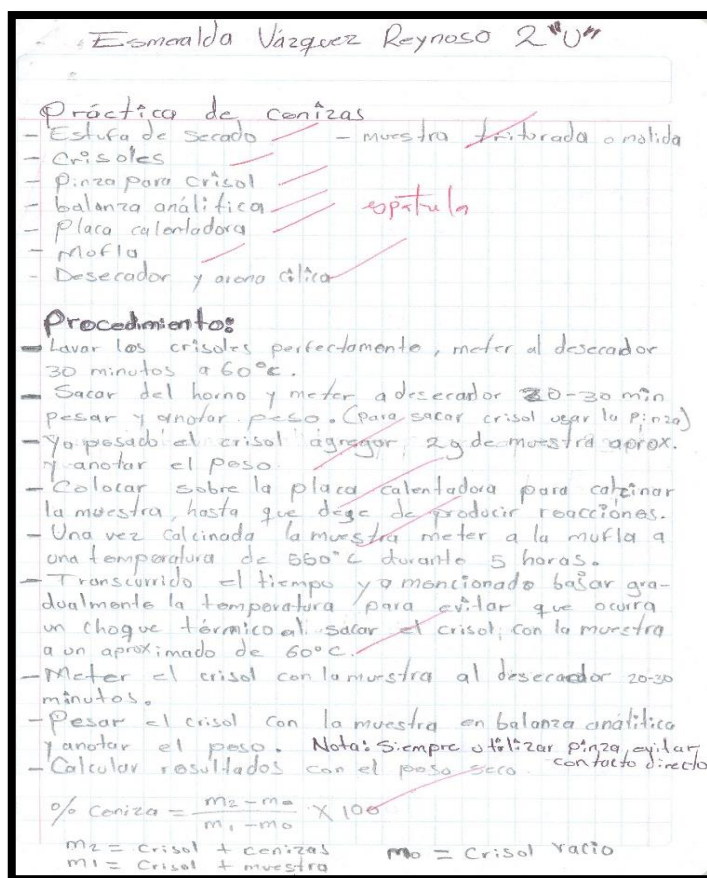 Esmeralda Vázquez Reynoso 2 "U"
Práctica de cenizas
- Estufa de secado - muestra triturada o molida
- Crisoles
- pinza para crisol
- balanza análitica espátula
- Placa calentadora
- Mofla
- Desecador y arena cilica
Procedimiento:
- Lavar los crisoles perfectamente, meter al desecador
30 minutos a 60°c.
- Sacar del horno y meter a desecador 20-30 min
pesar y anotar peso. (para sacar crisol usar la pinza)
- Ya pesado el crisol agregar 2g de muestra aprox.
y anotar el peso
- Colocar sobre la placa calentadora para calcinar
la muestra, hasta que dege de producir reacciones.
- Una vez calcinada la muestra meter a la mufla a
una temperatura de 550°c durante 5 horas.
- Transcurrido el tiempo ya mencionado bajar gra-
dualmente la temperatura para evitar que ocurra
un choque térmico al sacar el crisol, con la muestra
a un aproximado de 60°c.
- Meter el crisol con la muestra al desecador 20-30
minutos.
- Pesar el crisol con la muestra en balanza análitica
y anotar el peso. Nota: Siempre utilizar pinza, evitar
contacto directo
- Calcular resultados con el peso seco
% Ceniza = m2 - mo / m1 - mo X 100
m2 = crisol + cenizas mo = Crisol vacio
m1 = Crisol + muestra